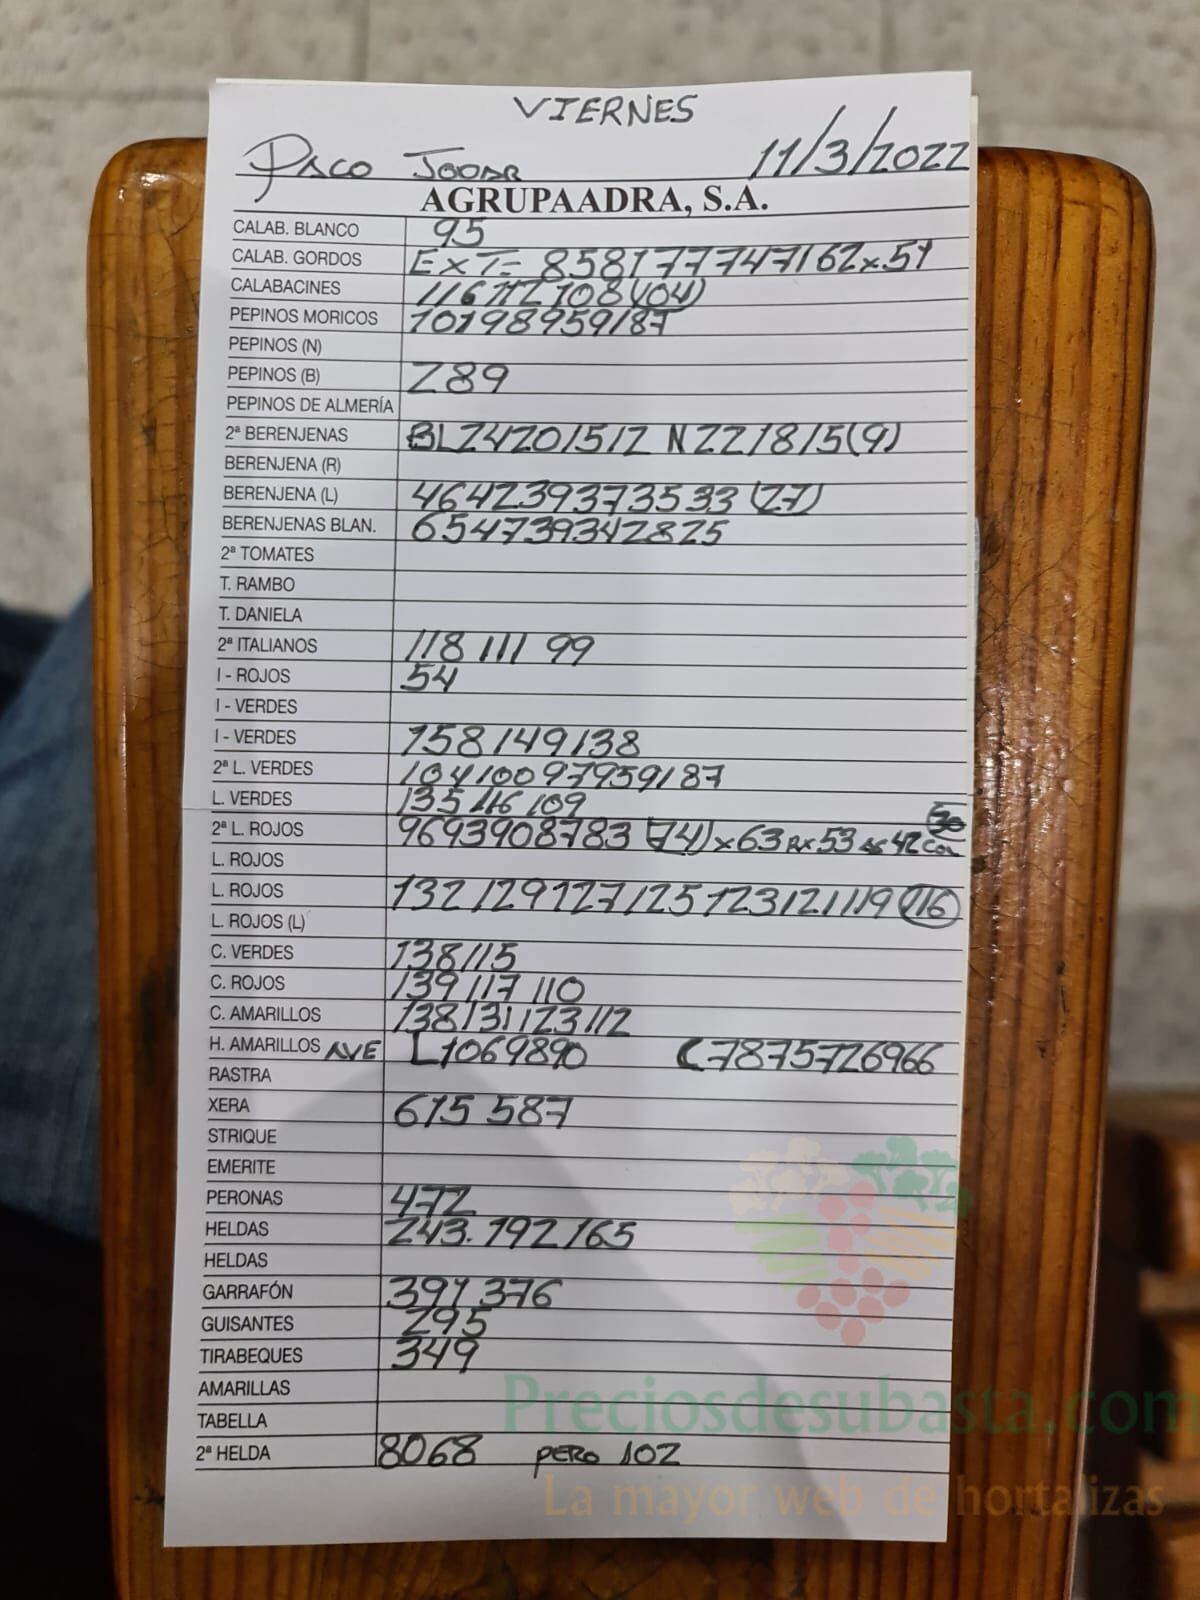 VIERNES
PACO JODAR 11/3/2022
AGRUPAADRA, S.A.
CALAB. BLANCO 95
CALAB. GORDOS EXT= 8581777747162x.51
CALABACINES 116112108(04)
PEPINOS MORICOS 10198959187
PEPINOS (N)
PEPINOS (B) 289
PEPINOS DE ALMERÍA
2ª BERENJENAS BL24201512 N221815(9)
BERENJENA (R)
BERENJENA (L) 464239373533 (27)
BERENJENAS BLAN. 654739342825
2ª TOMATES
T. RAMBO
T. DANIELA
2ª ITALIANOS 118 111 99
I - ROJOS 54
I - VERDES
I - VERDES 158149138
2ª L. VERDES 10410097959187
L. VERDES 135 116 109
2ª L. ROJOS 9693908783 (74)x63 Rx53 42 COL
L. ROJOS
L. ROJOS 132129127125123121119(116)
L. ROJOS (L)
C. VERDES 138115
C. ROJOS 139 117 110
C. AMARILLOS 138131123112
H. AMARILLOS AVE L1069890 C7875726966
RASTRA
XERA 615 587
STRIQUE
EMERITE
PERONAS 472
HELDAS 243.192165
HELDAS
GARRAFÓN 391 376
GUISANTES 295
TIRABEQUES 349
AMARILLAS
TABELLA
2ª HELDA 8068 PERO 102
Preciosdesubasta.com
La mayor web de hortalizas